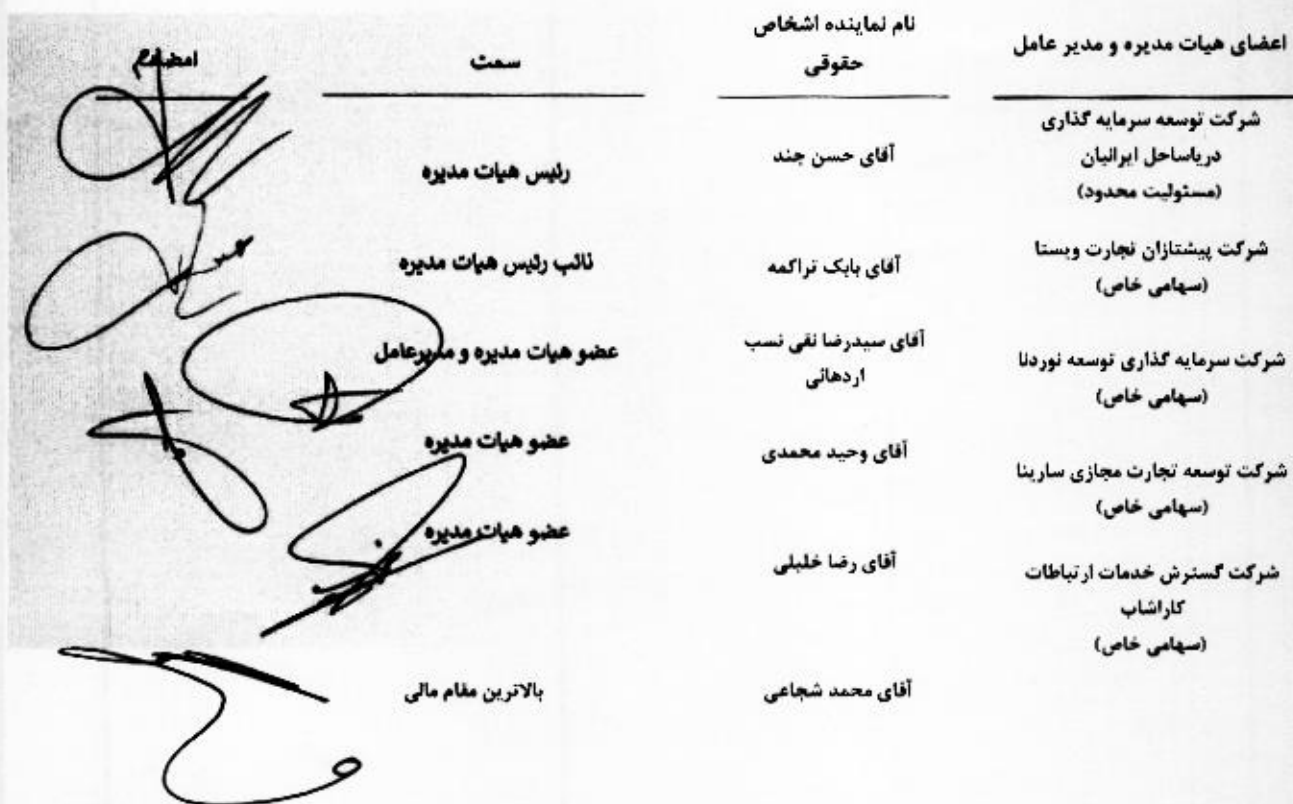 اعضای هیات مدیره و مدیر عامل
نام نماینده اشخاص
حقوقی
سمت
امضاء
شرکت توسعه سرمایه گذاری
دریاساحل ایرانیان
(مسئولیت محدود)
آقای حسن جند
رئیس هیات مدیره
شرکت پیشتازان تجارت ویستا
(سهامی خاص)
آقای بابک تراکمه
نائب رئیس هیات مدیره
شرکت سرمایه گذاری توسعه نوردنا
(سهامی خاص)
آقای سیدرضا نقی نسب
اردهائی
عضو هیات مدیره و مدیرعامل
شرکت توسعه تجارت مجازی سارینا
(سهامی خاص)
آقای وحید محمدی
عضو هیات مدیره
شرکت گسترش خدمات ارتباطات
کاراشاب
(سهامی خاص)
آقای رضا خلیلی
عضو هیات مدیره
آقای محمد شجاعی
بالاترین مقام مالی